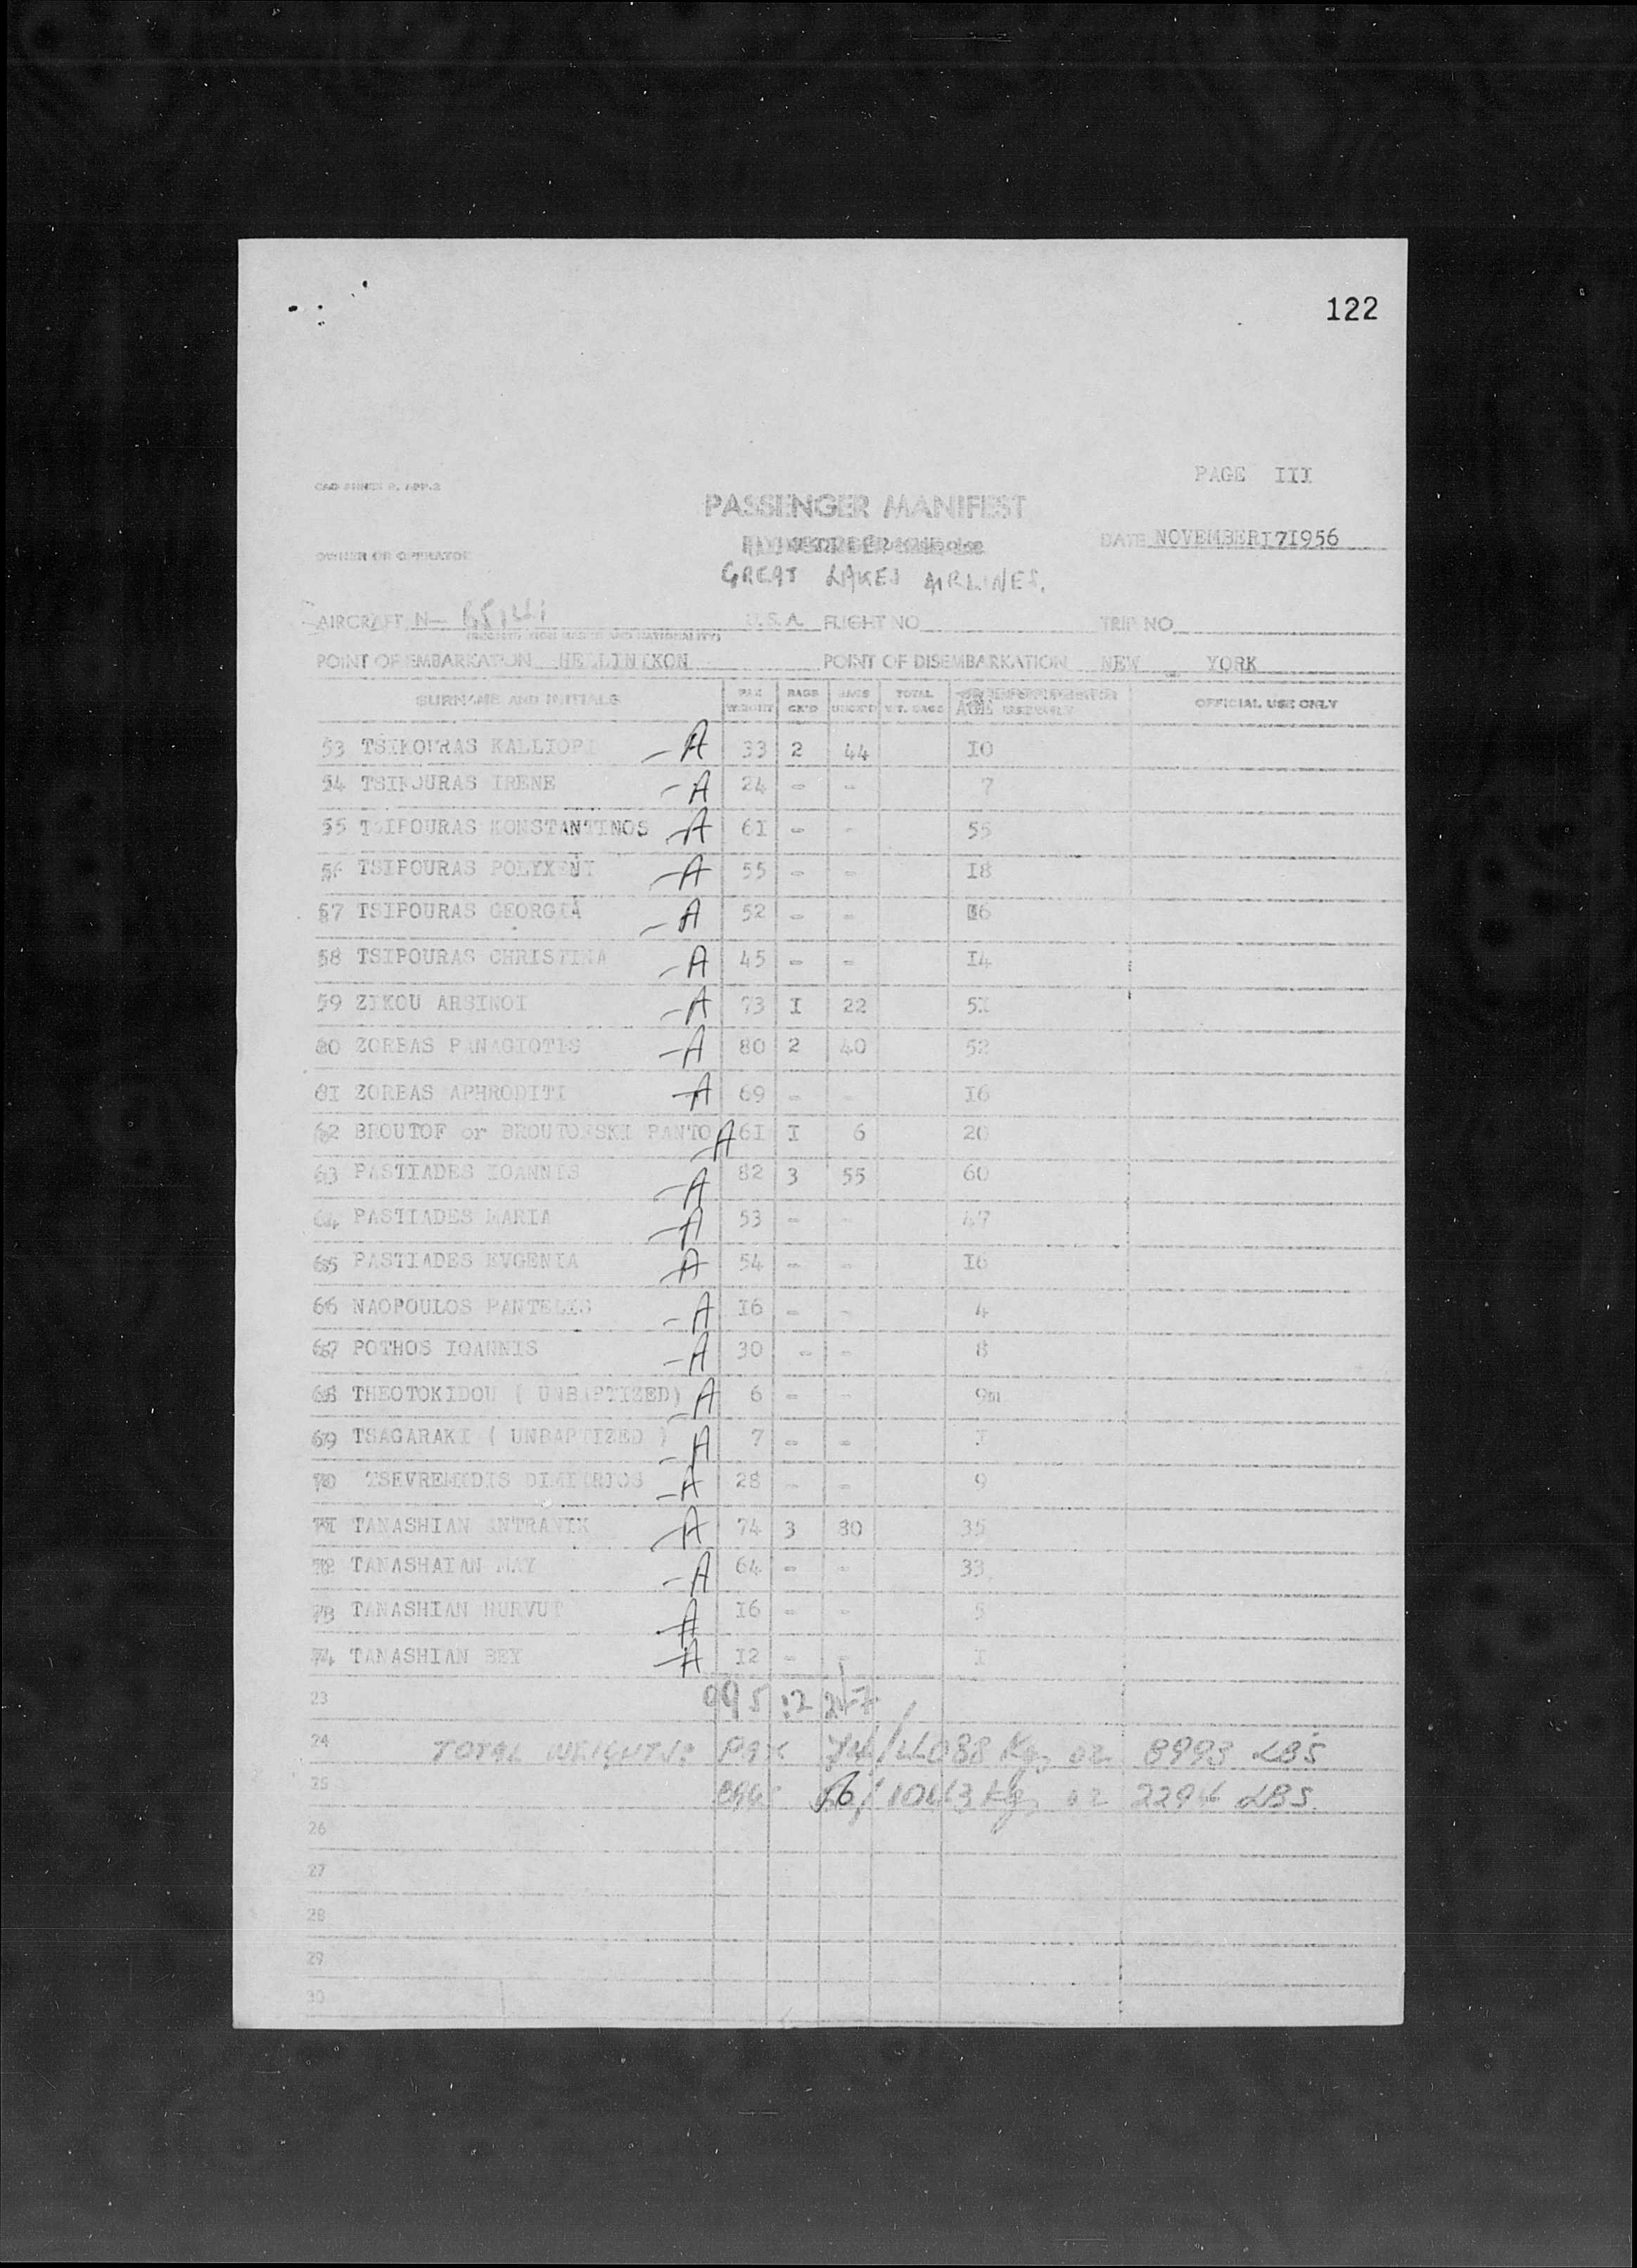 122
PAGE III
PASSENGER MANIFEST
DATE NOVEMBER I7I956
OWNER OR OPERATOR
GREAT LAKES AIRLINES.
AIRCRAFT N— 65141 U.S.A. FLIGHT NO TRIP NO
(REGISTRATION MARKS AND NATIONALITY)
POINT OF EMBARKATION HELLINIKON POINT OF DISEMBARKATION NEW YORK
SURNAME AND INITIALS PAX WEIGHT BAGS CK'D BAGS UNCK'D TOTAL WT. BAGS OFFICIAL USE ONLY
53 TSIPOURAS KALLIOPI —A 33 2 44 IO
54 TSIPOURAS IRENE —A 24 - - 7
55 TSIPOURAS KONSTANTINOS —A 6I - - 55
56 TSIPOURAS POLYXENI —A 55 - - I8
57 TSIPOURAS GEORGIA —A 52 - - I6
58 TSIPOURAS CHRISTINA —A 45 - - I4
59 ZIKOU ARSINOI —A 73 I 22 5I
60 ZORBAS PANAGIOTIS —A 80 2 40 52
6I ZORBAS APHRODITI —A 69 - - I6
62 BROUTOF or BROUTOFSKI PANTO —A 6I I 6 20
63 PASTIADES IOANNIS —A 82 3 55 60
64 PASTIADES MARIA —A 53 - - 47
65 PASTIADES EVGENIA —A 54 - - I6
66 NAOPOULOS PANTELIS —A I6 - - 4
67 POTHOS IOANNIS —A 30 - - 8
68 THEOTOKIDOU ( UNBAPTIZED) —A 6 - - 9m
69 TSAGARAKI ( UNBAPTIZED ) —A 7 - -
70 TSEVREMIDIS DIMITRIOS —A 28 - - 9
7I TANASHIAN ANTRANIK —A 74 3 80 35
72 TANASHAIAN MAY —A 64 - - 33
73 TANASHIAN HURVUT —A I6 - - 5
74 TANASHIAN BEY —A I2 - - I
23 995 12 247
24 TOTAL WEIGHTS: Pax 74/4088 Kgs or 8993 LBS
25 BAGS 56/1043 Kgs or 2294 LBS.
26
27
28
29
30